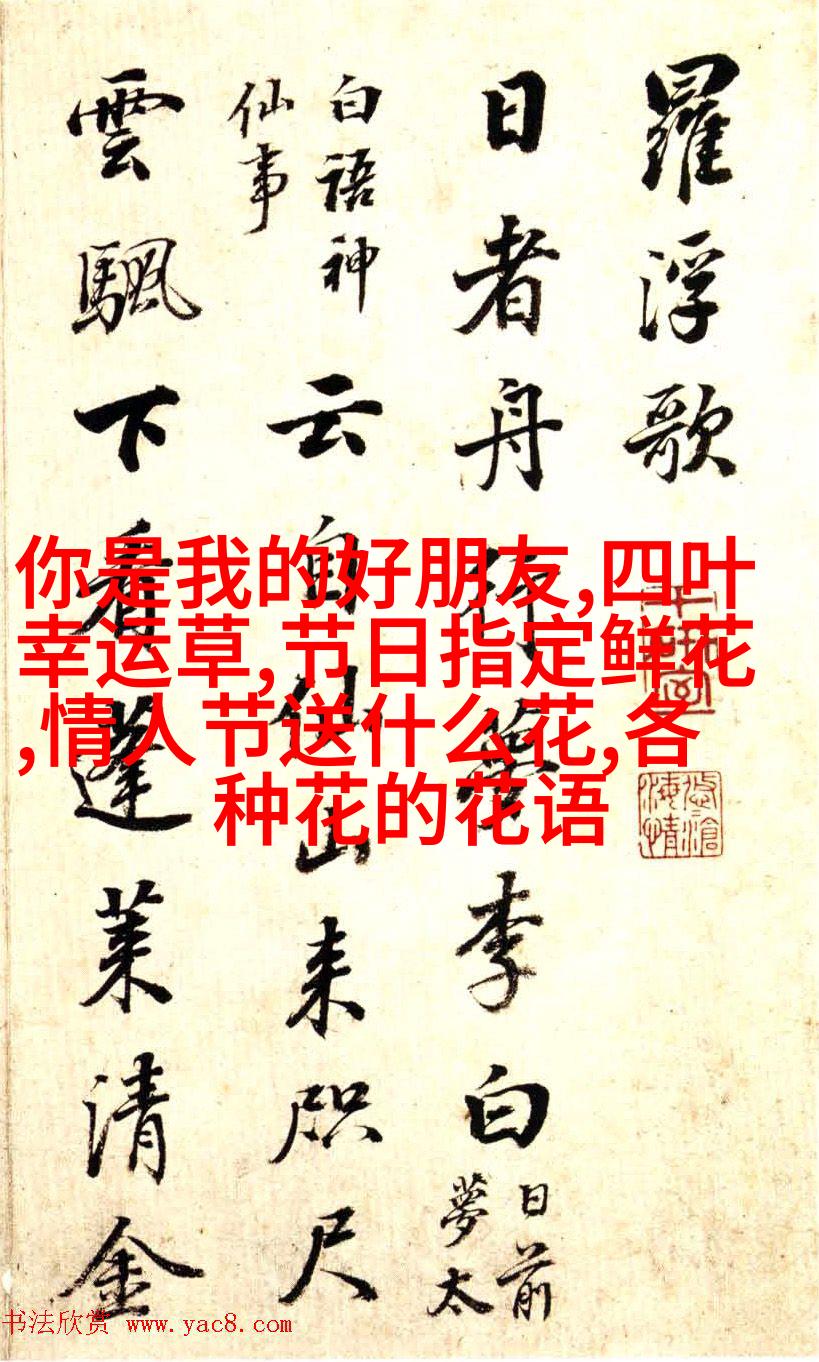 羅浮歌
日者舟行夢李白日前夢太
白語神仙事云自仙山来咫尺
雲飄下看蓬萊清金
你是我的好朋友,四叶
幸运草,节日指定鲜花
,情人节送什么花,各
种花的花语
书法欣赏 www.yac8.com